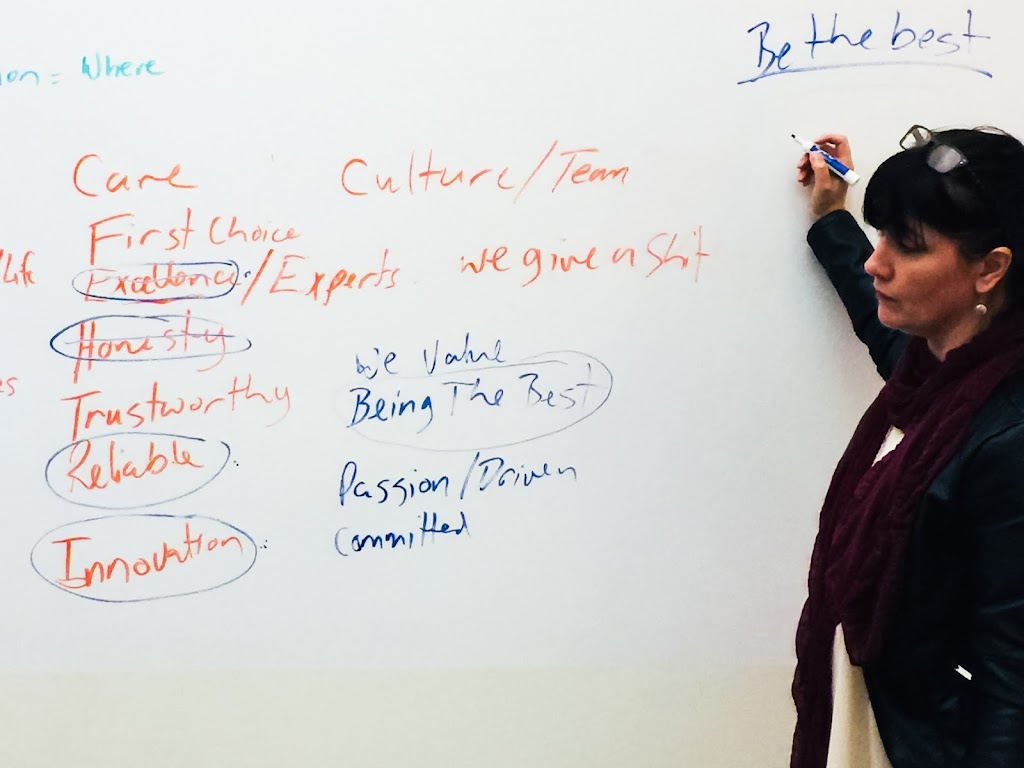 Be the best
on = Where
Care
Culture/Team
First Choice
/Life
Excellence/Experts
we give a Shit
Honesty
We Value
es
Trustworthy
Being The Best
Reliable
Passion/Driven
Committed
Innovation